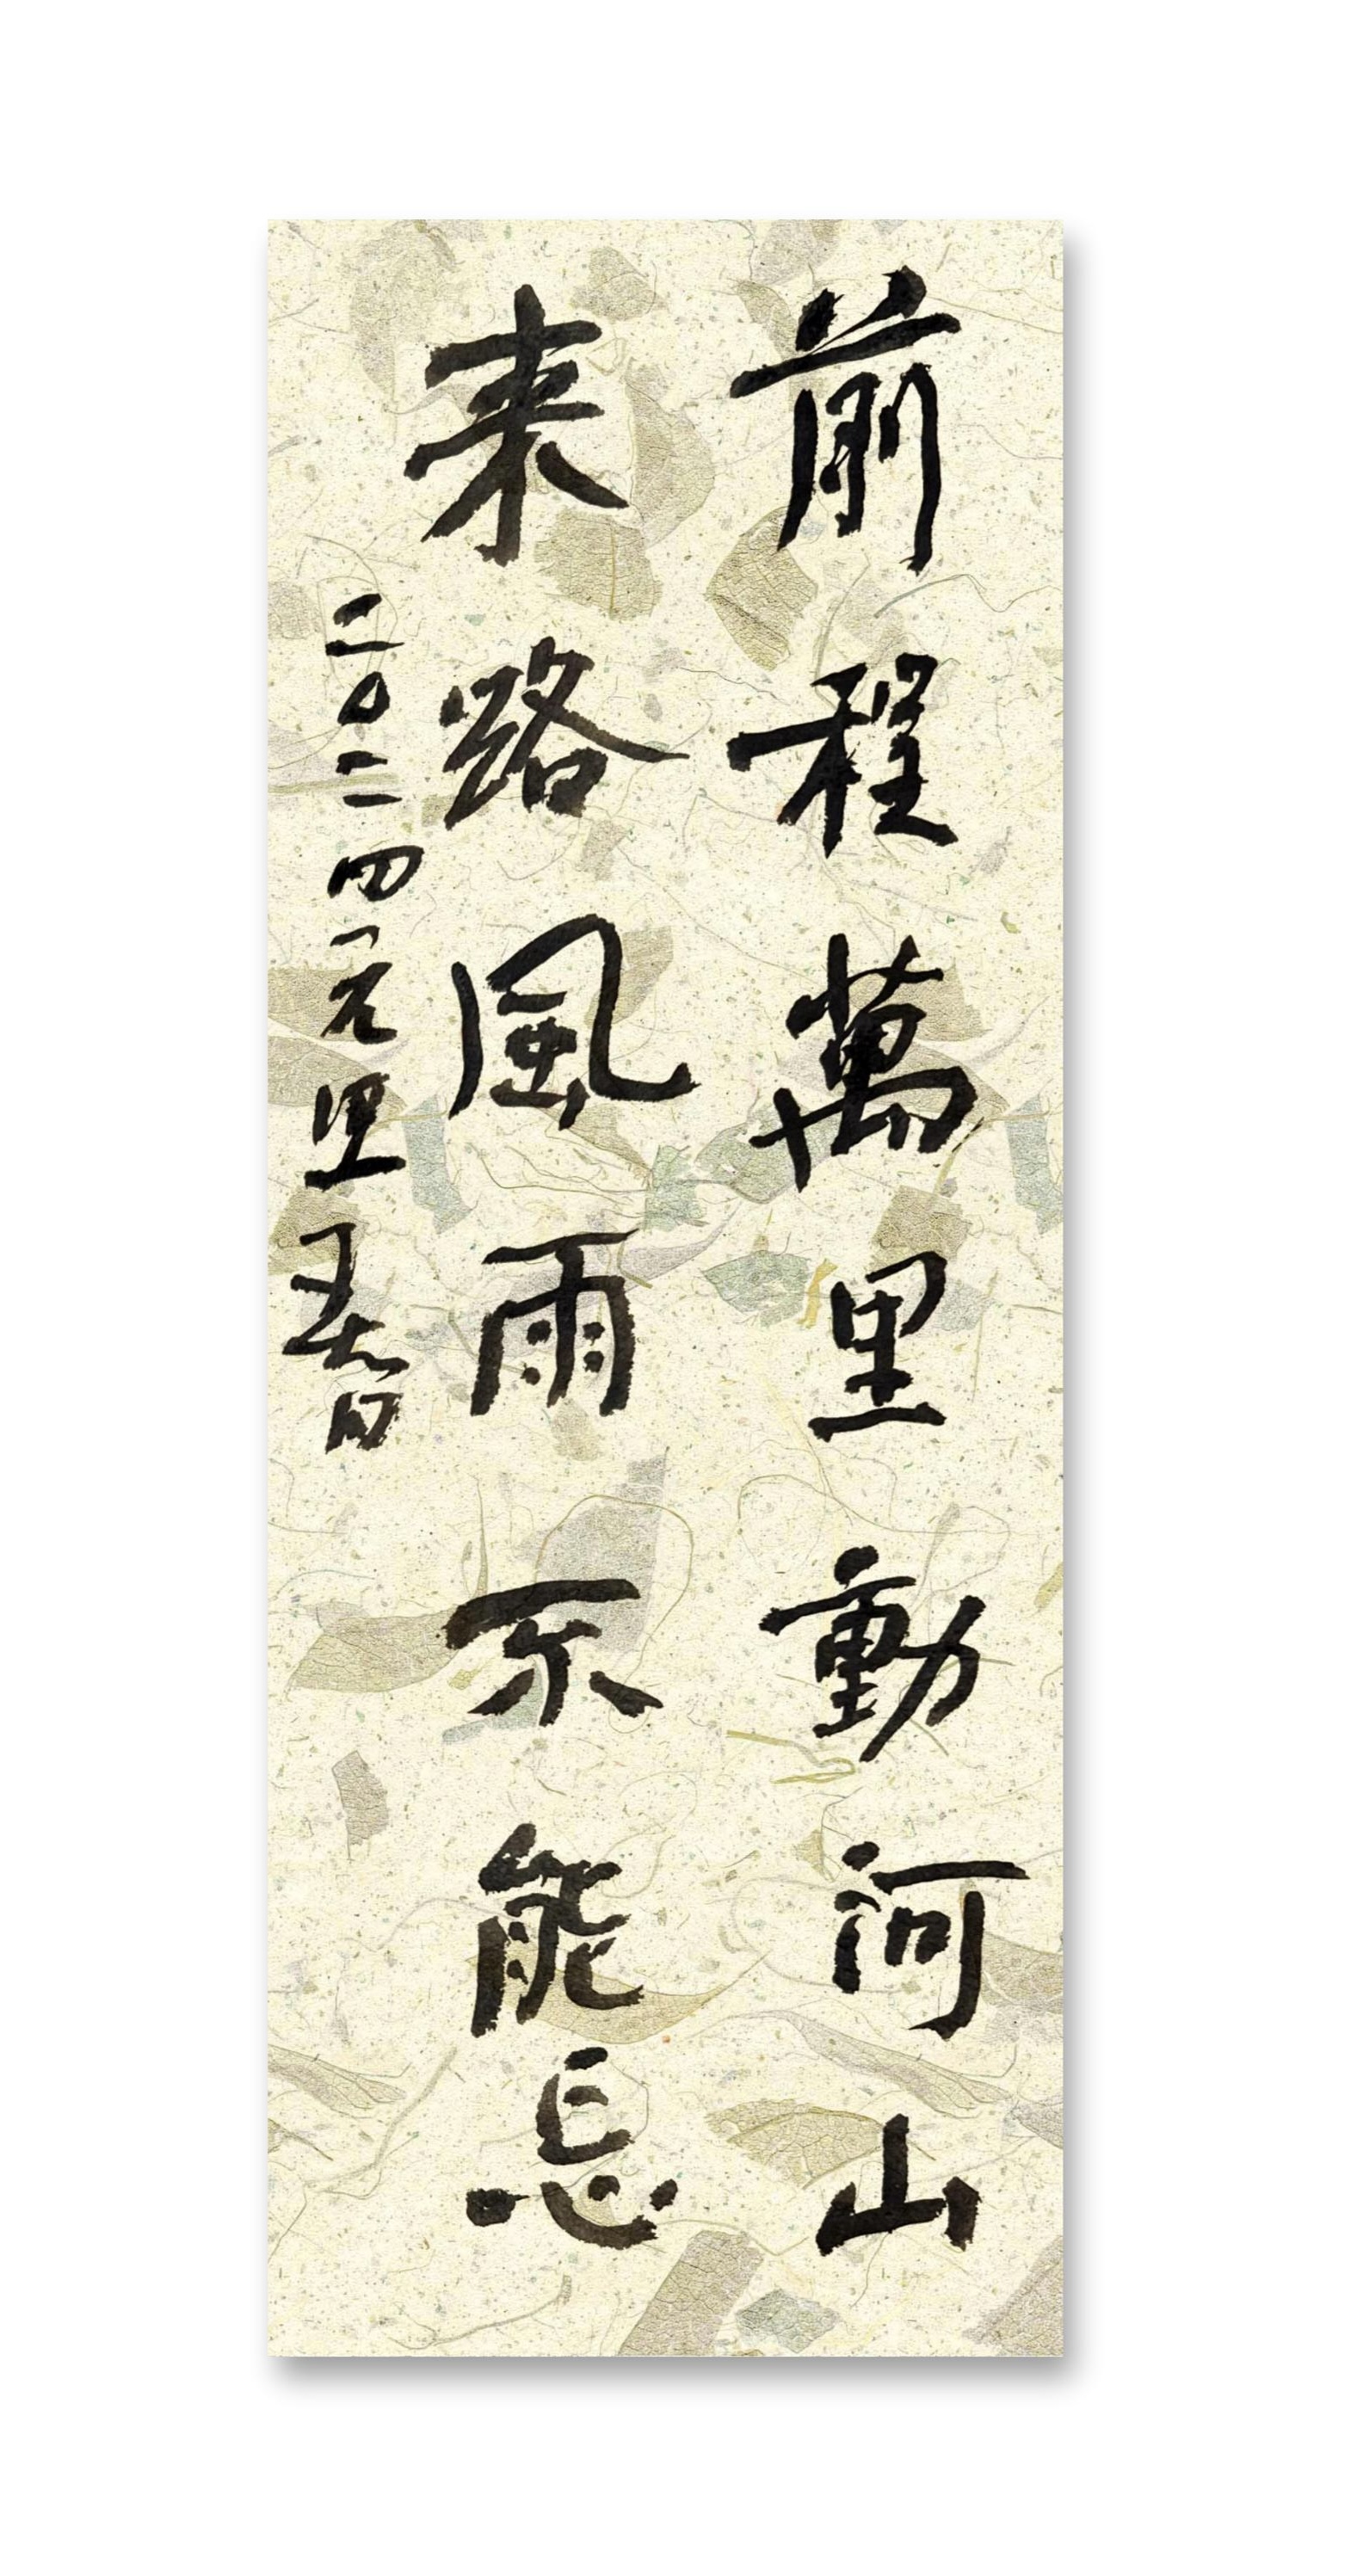 前程萬里動河山
来路風雨不能忘
二〇二四元旦